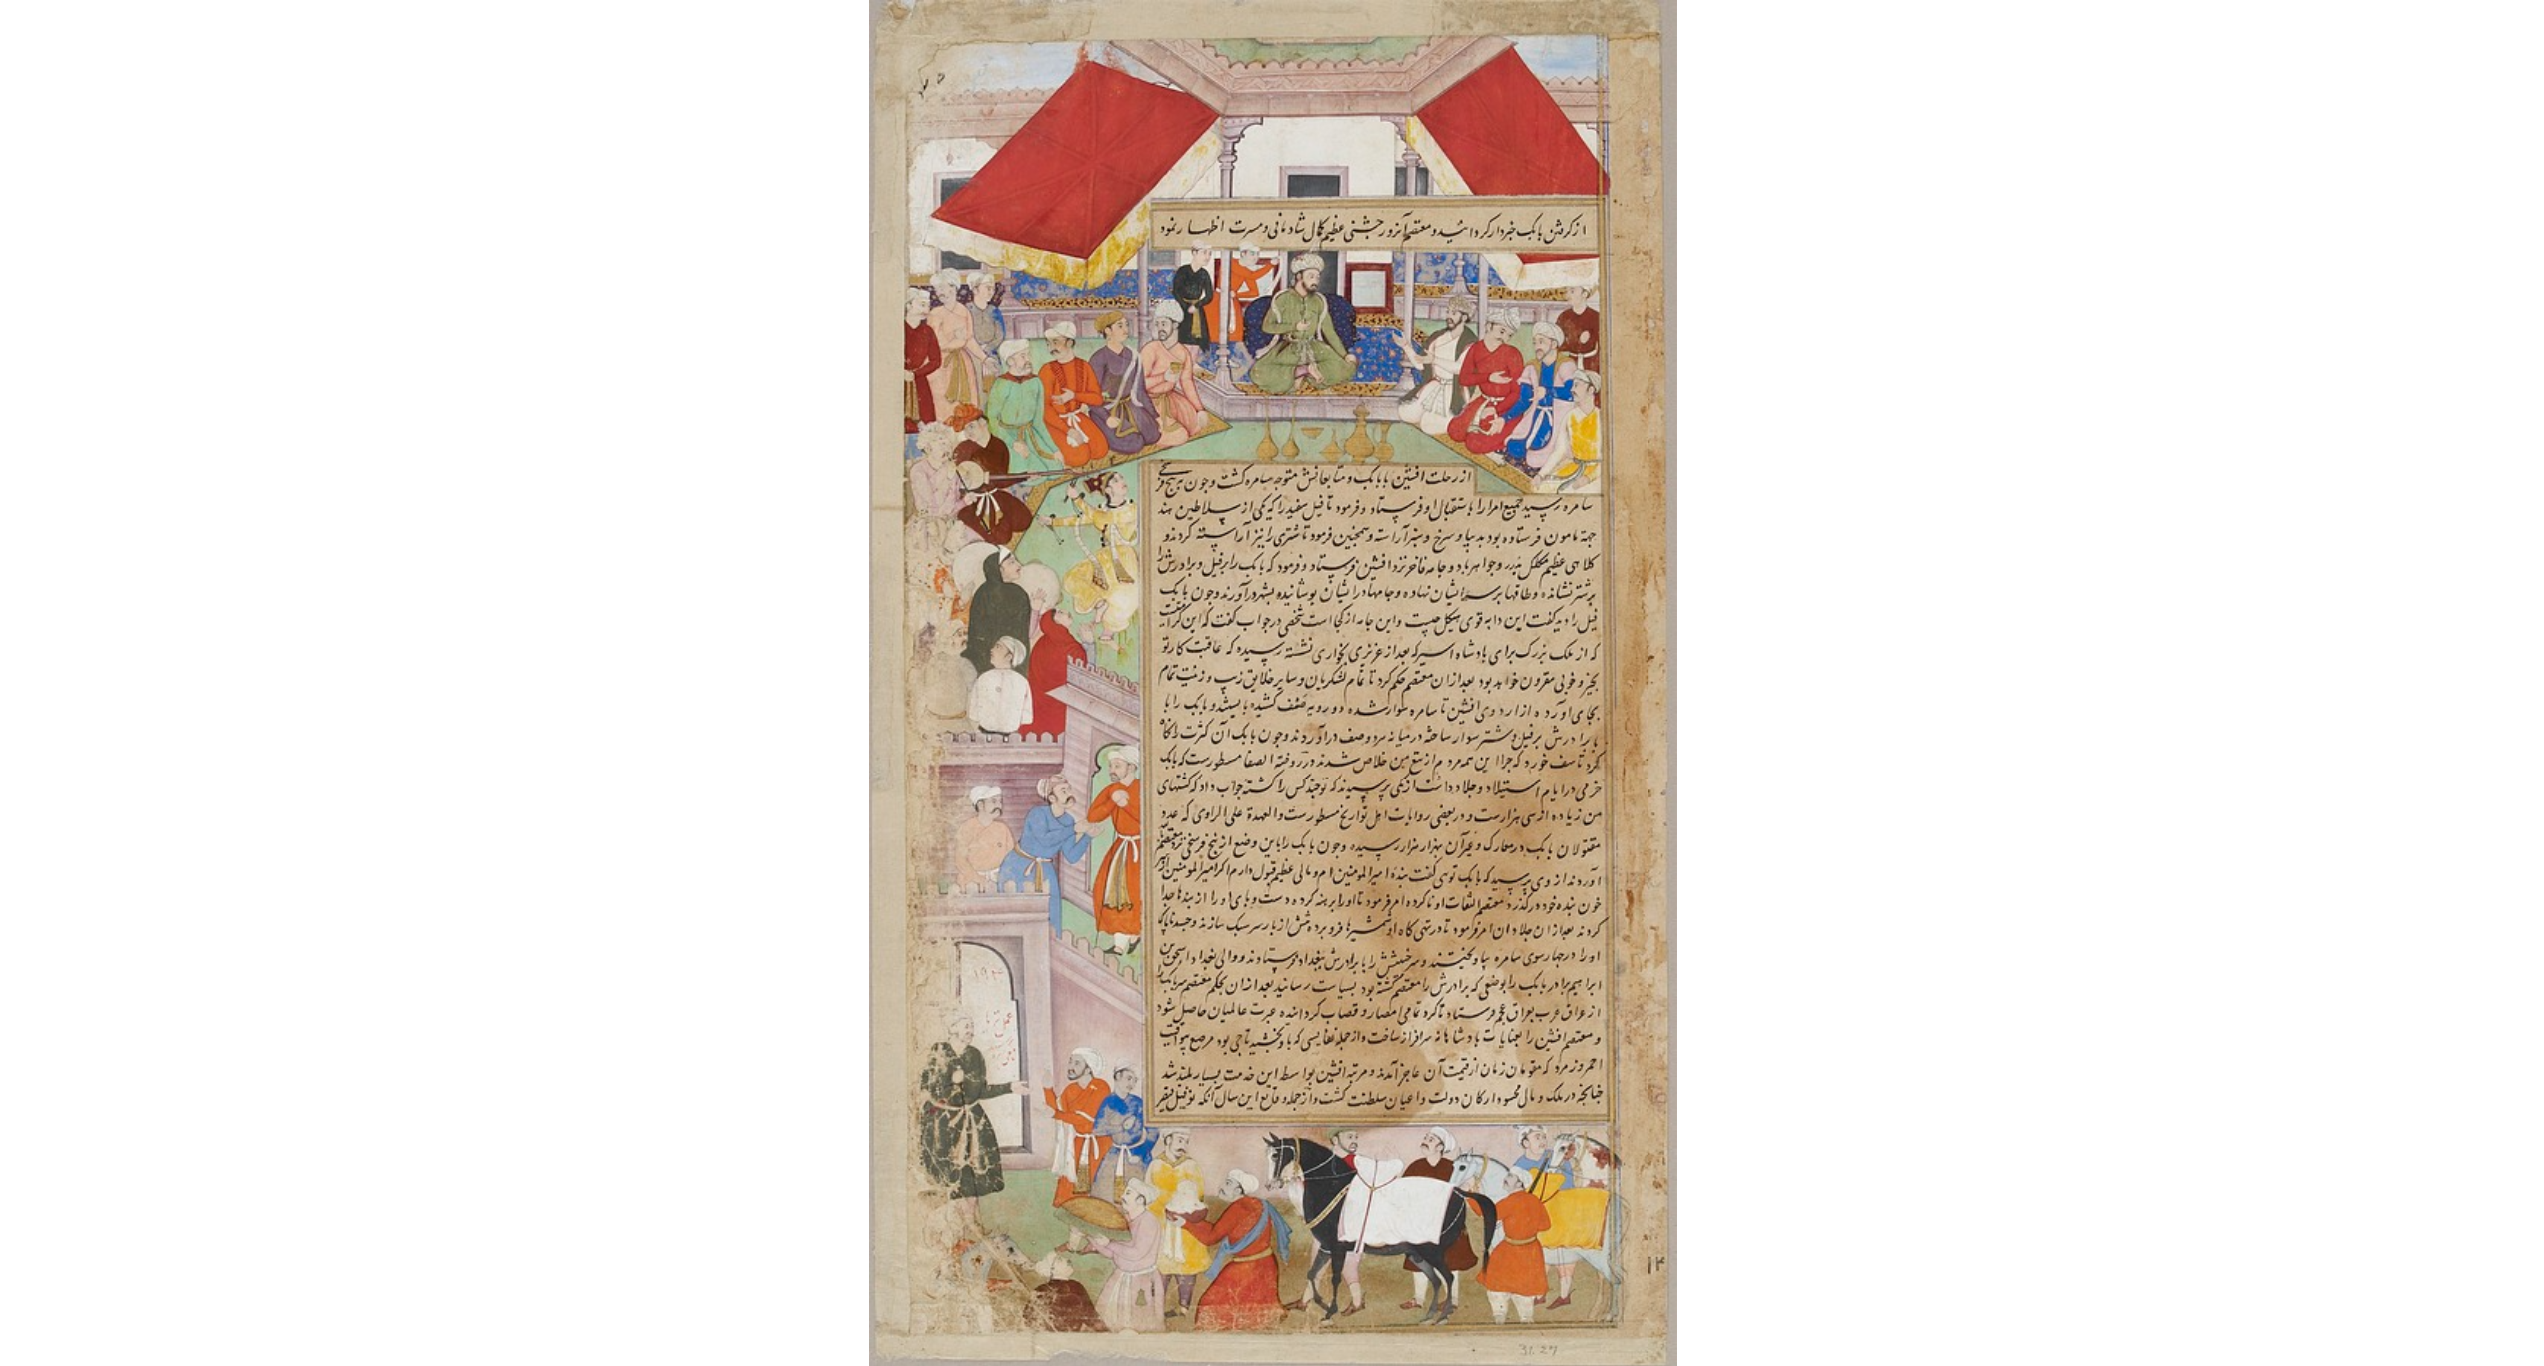 از گرفتن بابک خبردار گردانید و معتصم آنروز جشنی عظیم کمال شادمانی و مسرت اظهار نمود
از رحلت افشین با بابک و متابعانش متوجه سامره گشت و چون به پنج فرسخی
سامره رسید جمیع امرا را باستقبال او فرستاد و فرمود تا فیل سفید را که یکی از سلاطین هند
جهة مامون فرستاده بود بدیبا و سرخ و سبز آراسته و همچنین فرمود تا شتری را نیز آراسته کردند و
کلاهی عظیم مکلل بدر و جواهر با دو جامه فاخر نزد افشین فرستاد و فرمود که بابک را بر فیل و برادرش را
بر شتر نشانده و طاقها بر سر ایشان نهاده و جامها در ایشان پوشانیده بشهر درآورند و چون بابک
فیل را دید گفت این دابه قوی هیکل چیست و این جامه از کجا است شخصی در جواب گفت که این کرامتیست
که از ملک بزرک برای پادشاه اسیر که بعد از عزیزی بخواری نشسته رسیده که عاقبت کار تو
بخیر و خوبی مقرون خواهد بود بعد از ان معتصم حکم کرد تا تمام لشکریان و سایر خلایق زیب و زینت تمام
بجای آورده از اردوی افشین تا سامره سوار شده دو رویه صف کشیده بایستند و بابک را با
برادرش بر فیل و شتر سوار ساخته در میانه هر دو صف درآوردند و چون بابک آن کثرت را نگاه
کرد تاسف خورد که چرا این همه مردم از تیغ من خلاص شدند در روضة الصفا مسطورست که بابک
خرمی در ایام استیلا ده جلاد داشت از یکی پرسیدند که تو چند کس را کشته جواب داد که کشتهای
من زیاده از سی هزارست و در بعضی روایات اهل تواریخ مسطورست والعهدة علی الراوی که عدد
مقتولان بابک در معارک و غیرآن بهزار هزار رسیده و چون بابک را باین وضع از پنج فرسخی نزد معتصم
آوردند از وی پرسید که بابک توی گفت بنده امیرالمومنین ام و مالی عظیم قبول دارم اگر امیرالمومنین از
خون بنده خود درگذرد معتصم التفات او ناکرده امر فرمود تا او را برهنه کرده دست و پای او را از بندها جدا
کردند بعد از ان جلادان امر فرمود تا در تهی گاه او شمشیرها فرو برده تنش از بار سر سبک سازند و جسد ناپاک
او را در چهارسوی سامره بیاویختند و سر خبیثش را با برادرش ببغداد فرستادند و والی بغداد اسحق بن
ابراهیم برادر بابک را بوضعی که برادرش را معتصم کشته بود بسیاست رسانید بعد از ان بحکم معتصم سر بابک را
از عراق عرب بعراق عجم فرستاد تا گرد تمامی امصار و قصبات گردانیده عبرت عالمیان حاصل شود
و معتصم افشین را بعنایات پادشاهانه سرافراز ساخت و از جمله نفایسی که باو بخشید تاجی بود مرصع بیواقیت
احمر و زمرد که مقومان زمان از قیمت آن عاجز آمدند و مرتبه افشین بواسطه این خدمت بسیار بلند شد
چنانچه در ملک و مال محسود ارکان دولت و اعیان سلطنت گشت و از جمله وقایع این سال آنکه توفیل قیصر
عمل
١٤
31.27